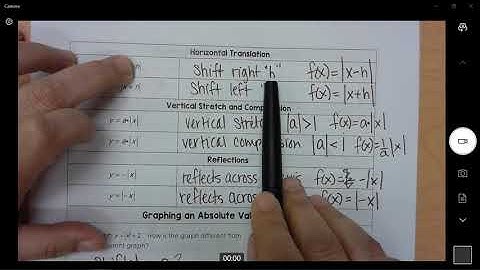 Camera
Horizontal Translation
Shift right "h" f(x)=|x-h|
Shift left f(x)=|x+h|
Vertical Stretch and Compression
y = a•|x| vertical stretch |a|>1 f(x)=a•|x|
y = a•|x| vertical compression |a|<1 f(x)=1/a|x|
Reflections
y = -|x| reflects across f(x)= -|x|
y = |-x| reflects across f(x)=|-x|
Graphing an Absolute Val
How is the graph different from
graph?
00:00